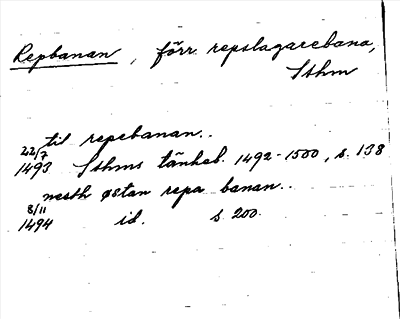 Repbanan, förr. repslagarebana,
Sthm
til repebanan..
22/7
1493 Sthms tänkeb. 1492-1500, s. 138
nesth østan repa banan..
8/11
1494 id. s. 200.